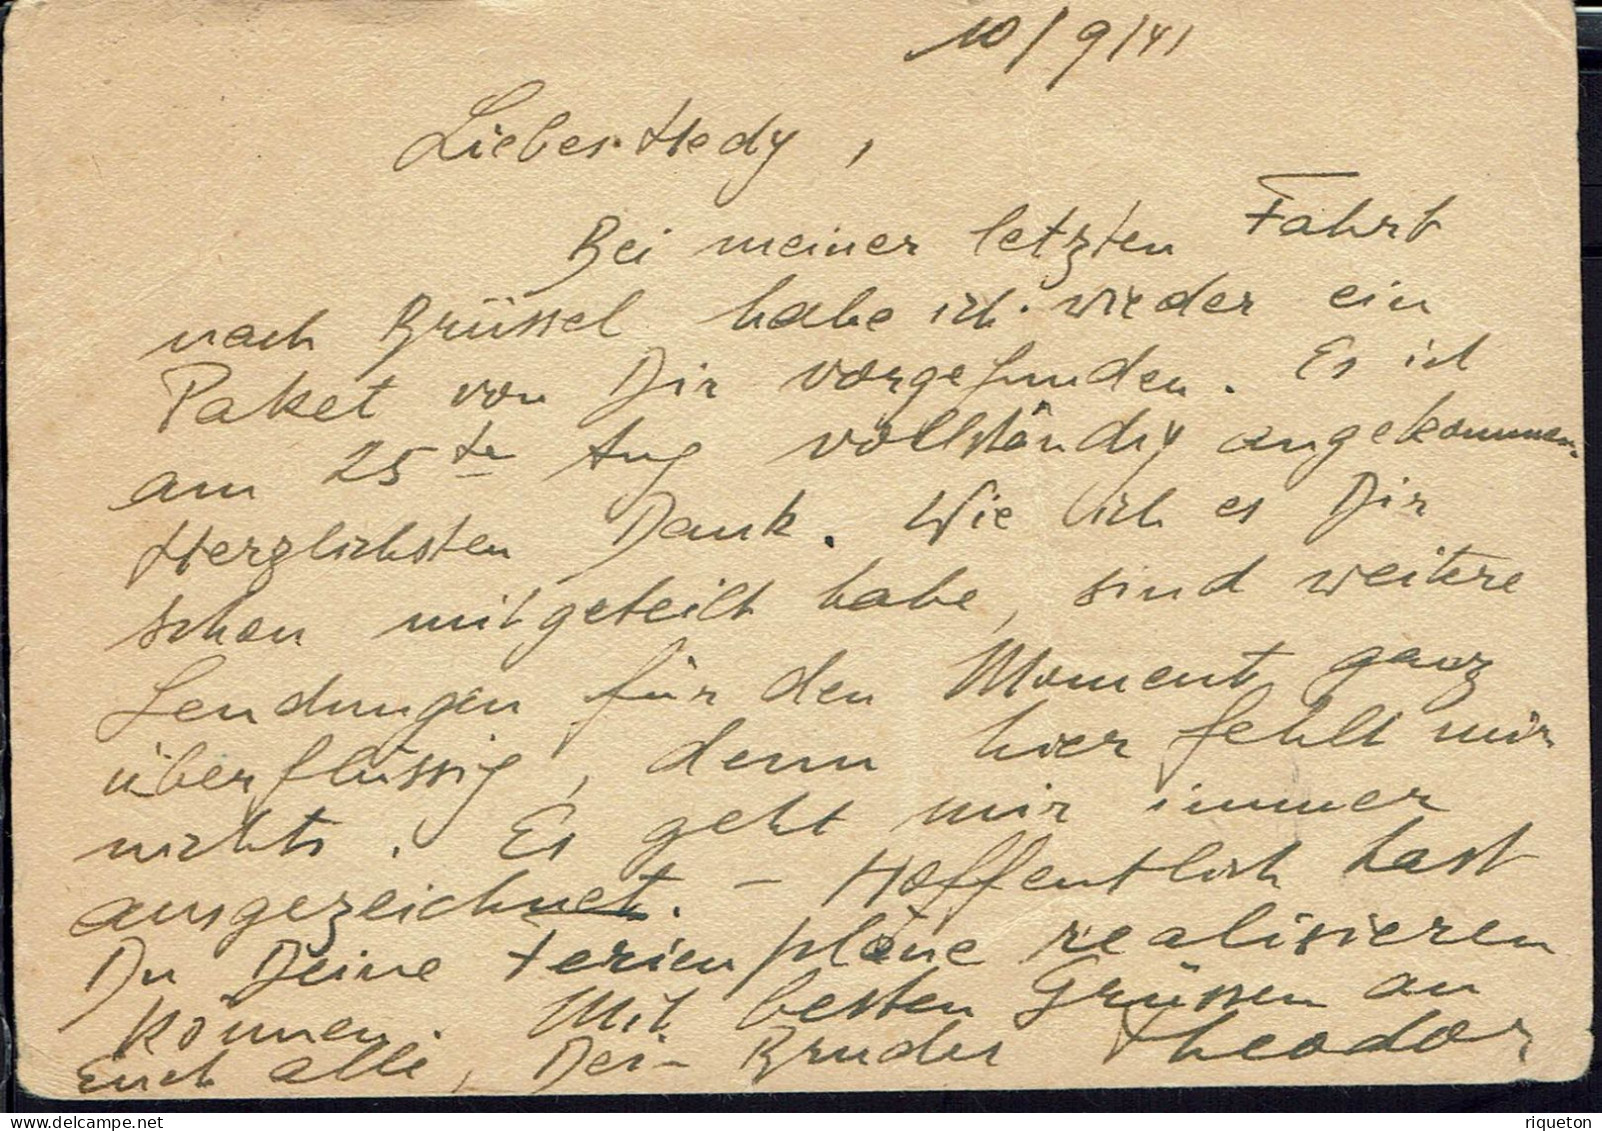 10/9/41
Liebes Hedy,
Bei meiner letzten Fahrt
nach Brüssel habe ich wieder ein
Paket von Dir vorgefunden. Es ist
am 25te Aug vollständig angekommen.
Herzlichsten Dank. Wie ich es Dir
schon mitgeteilt habe, sind weitere
Sendungen für den Moment ganz
überflüssig, denn hier fehlt mir
nichts. Es geht mir immer
ausgezeichnet. – Hoffentlich hast
Du Deine Ferienpläne realisieren
können. Mit besten Grüssen an
Euch alle, Dein Bruder Theodor
delcampe.net
riqueton